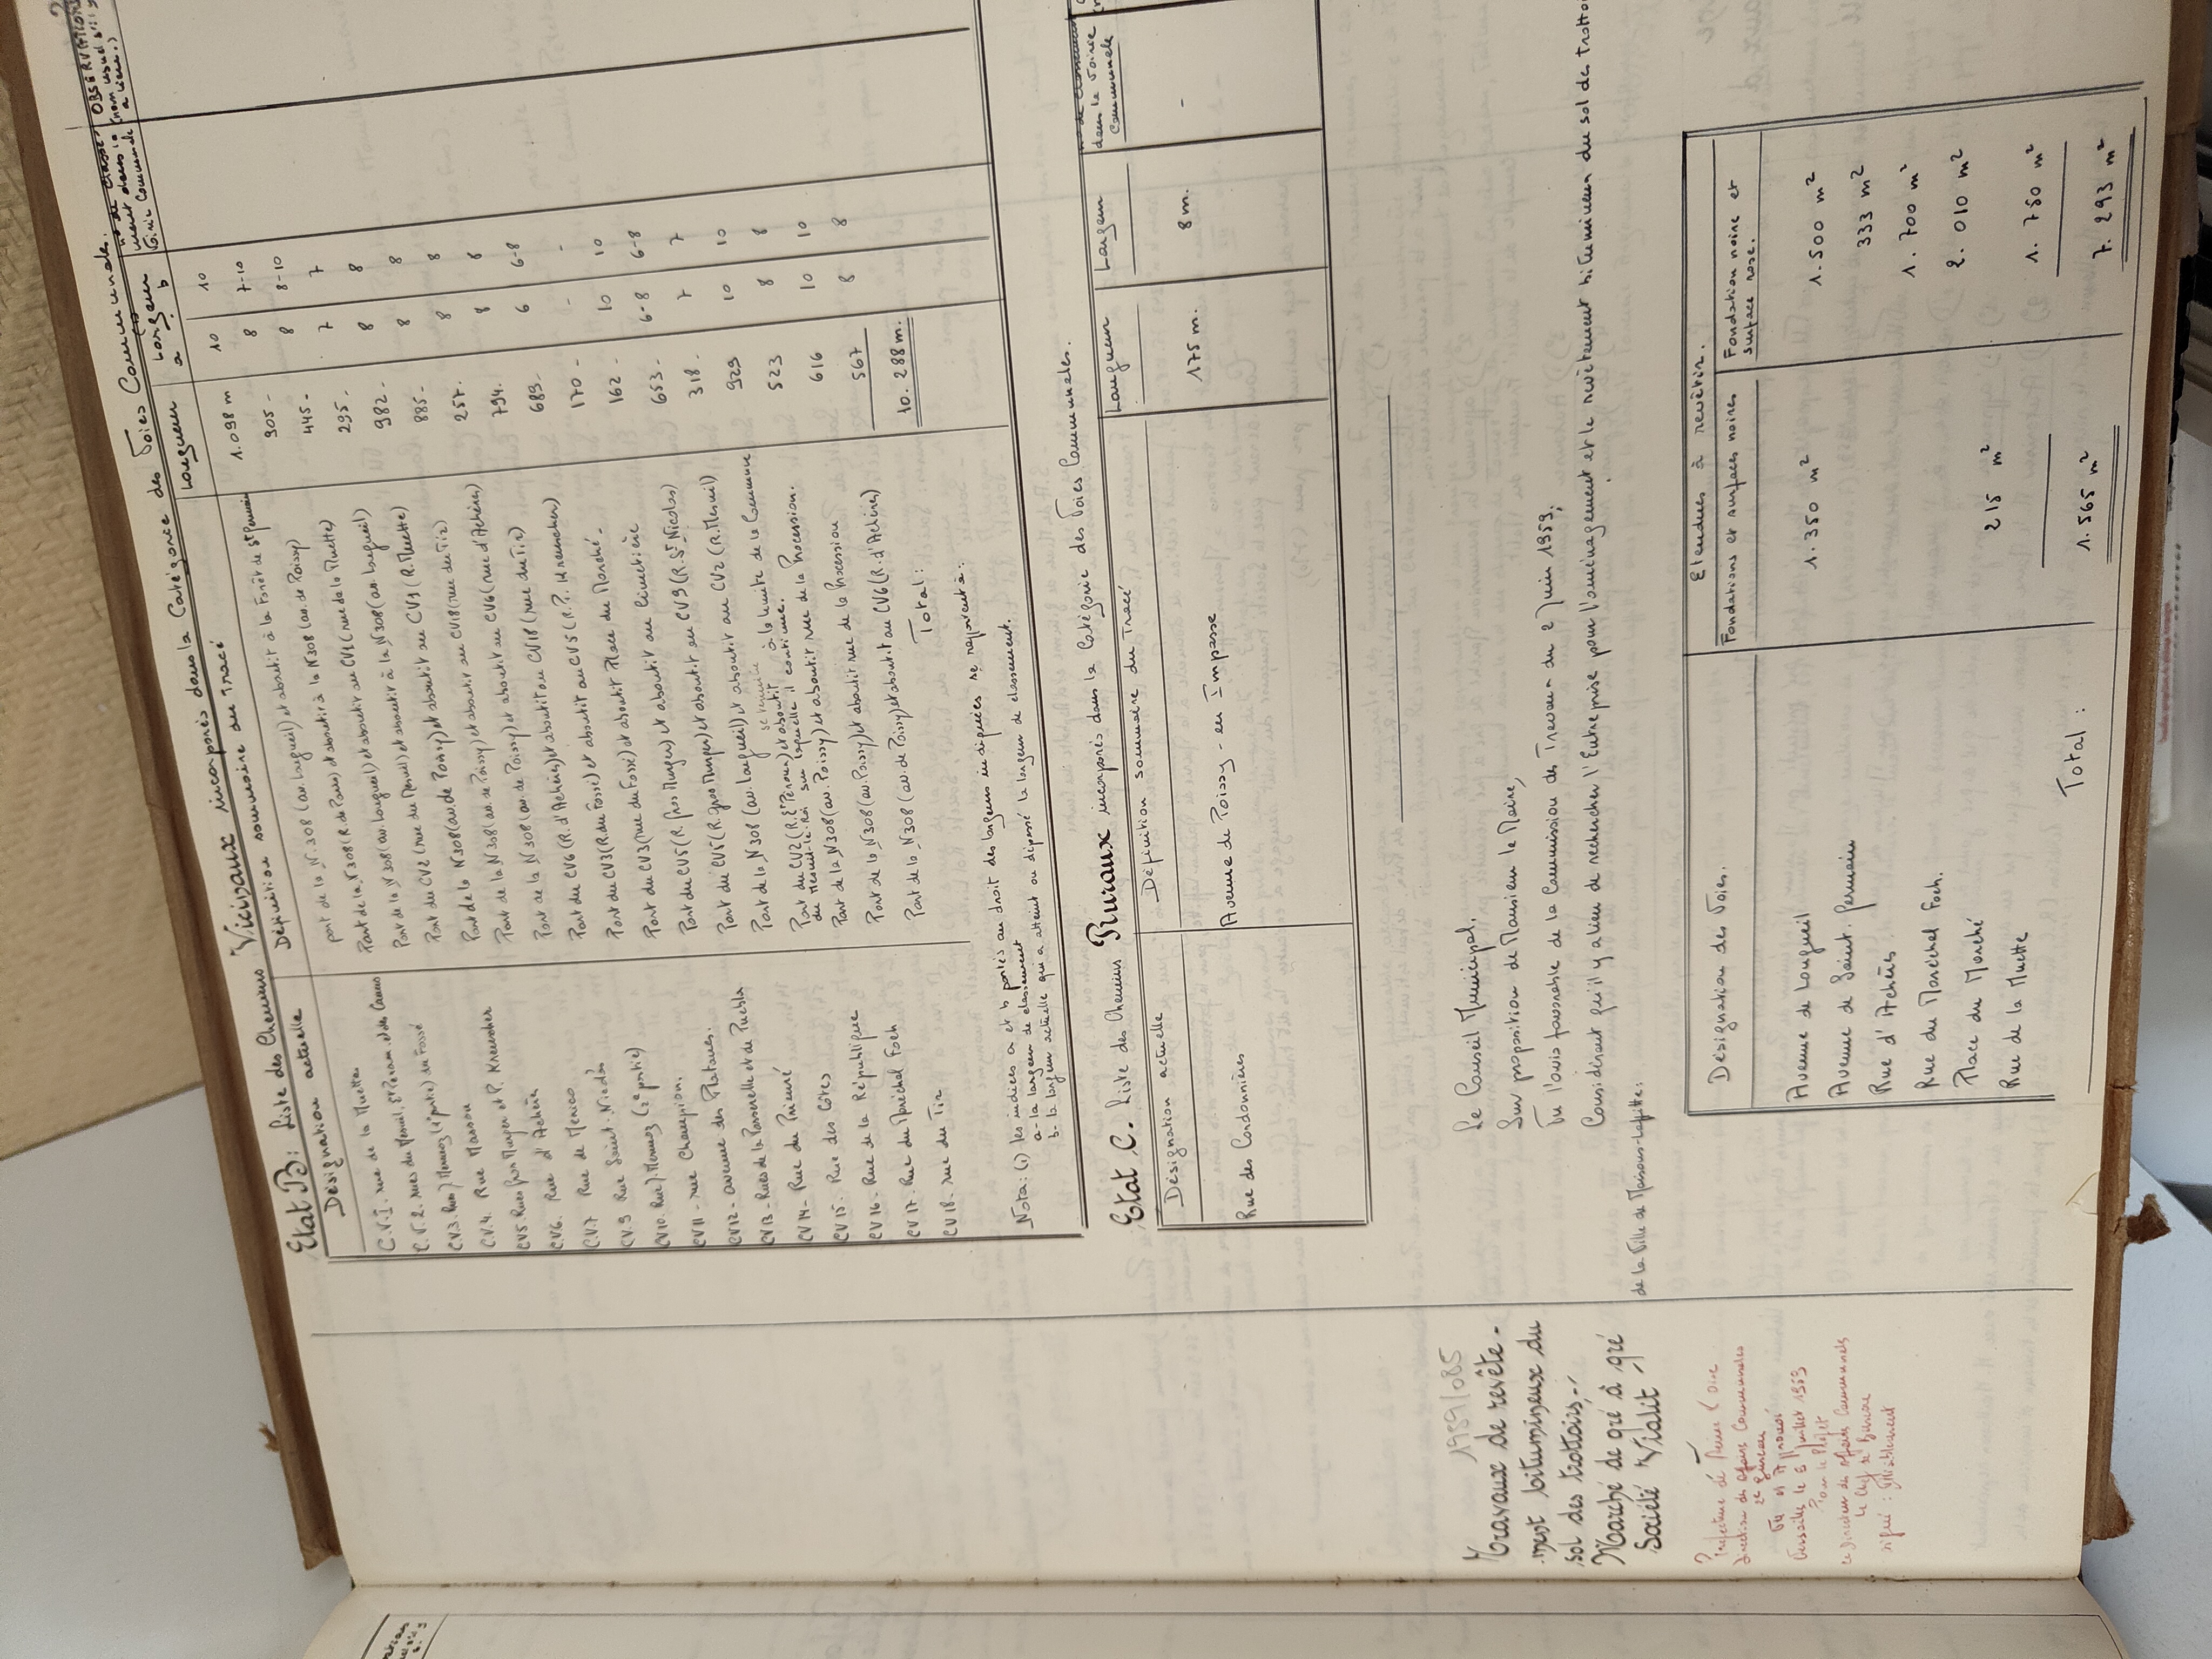 Etat B: Liste des Chemins Vicinaux incorporés dans la Catégorie des Voies Communales.
Désignation actuelle
Définition sommaire du Tracé
Longueur
Largeur
a b
OBSERVATIONS
C.V.I. rue de la Muette
part de la N.308 (av. Longueil) et aboutit à la Forêt de St Germain
1.098 m 10 10
C.V.2. rues du Mesnil, St Peram et des Canus
part de la N308 (R. de Paris) et aboutit à la N308 (av. de Poissy)
905 - 8 7-10
CV.3. Rue J. Mermoz (1e partie) du Fossé
Part de la N308 (av. Longueil) et aboutit au CV1 (rue de la Muette)
445 - 8 8-10
C.V.4. Rue Masson
Part du CV2 (rue du Mesnil) et aboutit à la N308 (av. Longueil)
295 - 7 7
CV5 Rues Gros Murger et P. Kreucher
Part de la N308 (av. de Poissy) et aboutit au CV1 (R. Muette)
982 - 8 8
C.V.6. Rue d'Achères
Part de la N308 (av. de Poissy) et aboutit au CV18 (rue du Tir)
885 - 8 8
C.V.7 Rue de Mexico
Part de la N308 (av. de Poissy) et aboutit au CV6 (rue d'Achères)
257. 8 8
CV.9 Rue Saint. Nicolas
Part de la N308 (av. de Poissy) et aboutit au CV18 (rue du Tir)
794. 8 8
CV10. Rue J. Mermoz (2e partie)
Part du CV6 (R. d'Achères) et aboutit au CV5 (R. P. Kreucher)
689. 6 6-8
CV11 - rue Champion.
Part du CV3 (R. du Fossé) et aboutit Place du Marché -
170 - - -
CV12 - avenue des Platanes.
Part du CV3 (rue du Fossé) et aboutit au Cimetière
162 - 10 10
CV13 - Rues de la Passerelle et de Puebla
Part du CV5 (R. Gros Murger) et aboutit au CV9 (R. St Nicolas)
653 - 6-8 6-8
CV14 - Rue du Prieuré
Part du CV5 (R. Gros Murger) et aboutit au CV2 (R. Mesnil)
318. 7 7
CV15. Rue des Côtes
Part de la N308 (av. Longueil) et aboutit à la limite de la Commune du Mesnil-le-Roi sur laquelle il continue.
929 10 10
CV16 - Rue de la République
et aboutit rue de la Procession.
523 8 8
CV17. Rue du Maréchal Foch
Part de la N308 (av. Poissy) et aboutit rue de la Procession
616 10 10
CV18 - rue du Tir
Part de la N308 (av. de Poissy) et aboutit au CV6 (R. d'Achères)
567 8 8
Total: 10. 288 m.
Nota: (1) les indices a et b portés au droit des largeurs indiquées se rapportent à:
a - la largeur de classement
b - la largeur actuelle qui a atteint ou dépassé la largeur de classement.
Etat C. Liste des Chemins Ruraux incorporés dans la Catégorie des Voies Communales.
Désignation actuelle
Définition sommaire du Tracé
Longueur
Largeur
dans la Voirie Communale
Rue des Cordonniers
Avenue de Poissy - en Impasse
175 m.
8 m.
-
1959/085
Travaux de revête-
-ment bitumineux du
sol des trottoirs,-
Marché de gré à gré
Société Vialit
Préfecture de Seine & Oise
Direction des Affaires Communales
2e Bureau
Vu et Approuvé
Versailles le 6 Juillet 1959
Pour le Préfet
Le Directeur des Affaires Communales
Le Chef de Bureau
signé: Illisiblement
Le Conseil Municipal.
Sur proposition de Monsieur le Maire,
Vu l'avis favorable de la Commission des Travaux du 2 Juin 1959,
Considérant qu'il y a lieu de rechercher l'Entreprise pour l'aménagement et le revêtement bitumineux du sol de trottoirs
de la Ville de Maisons-Laffitte.
Désignation des Voies.
Etendues à revêtir.
Fondations et surfaces noires
Fondation noire et surface rose.
Avenue de Longueil 1.350 m² 1.500 m²
Avenue de Saint. Germain 333 m²
Rue d'Achères 1.700 m²
Rue du Maréchal Foch. 2.010 m²
Place du Marché 215 m²
Rue de la Muette 1.750 m²
Total: 1.565 m² 7.293 m²